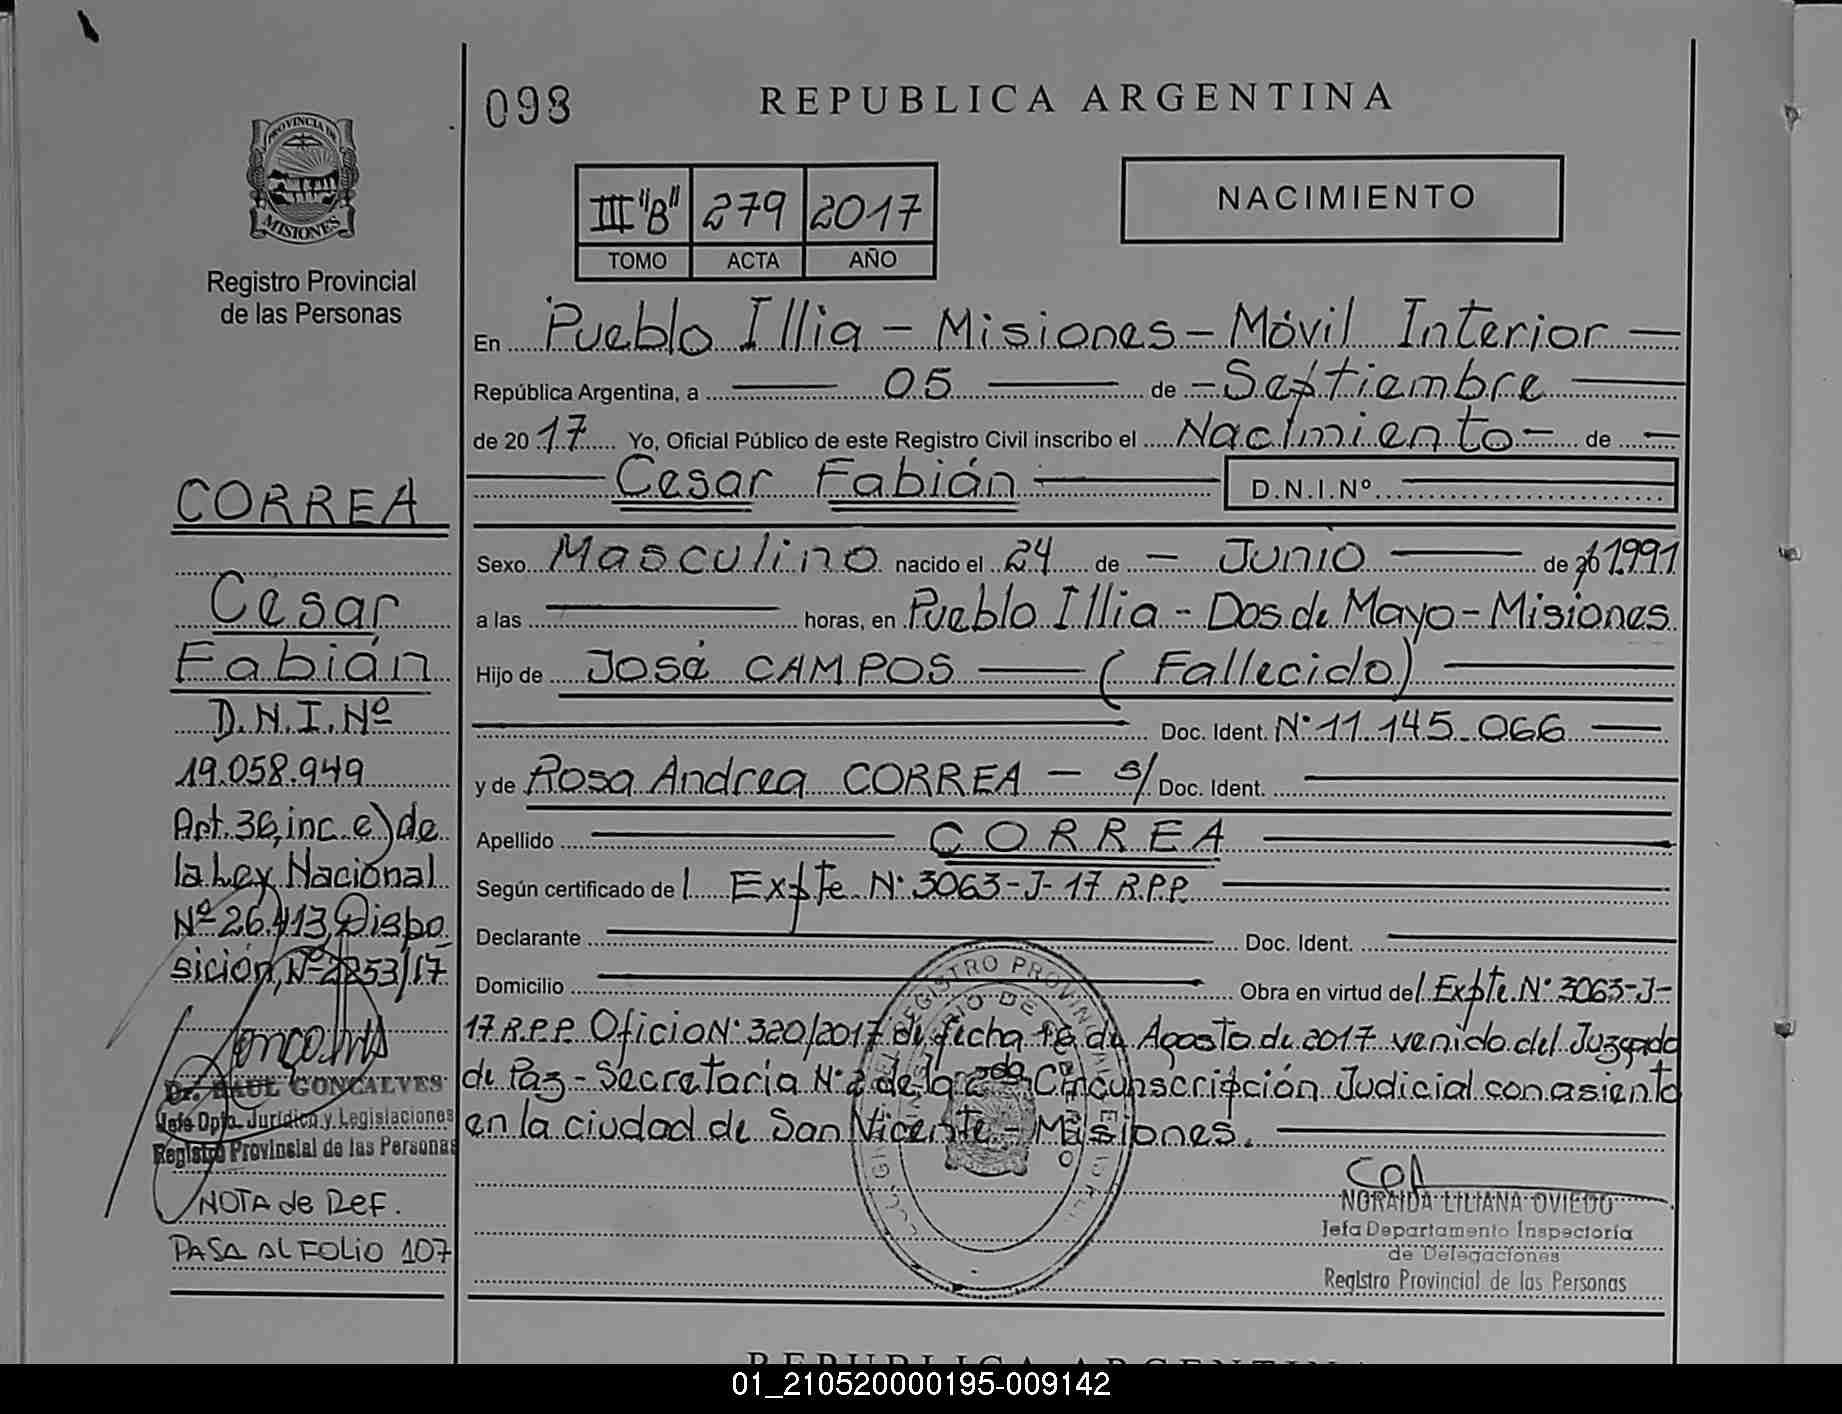 098
REPUBLICA ARGENTINA
PROVINCIA DE
MISIONES
Registro Provincial
de las Personas
III "B" 279 2017
TOMO ACTA AÑO
NACIMIENTO
En Pueblo Illia - Misiones - Móvil Interior
República Argentina, a 05 de Septiembre
de 2017 Yo, Oficial Público de este Registro Civil inscribo el Nacimiento de
Cesar Fabián D.N.I.Nº
Sexo Masculino nacido el 24 de Junio de 20 1991
a las horas, en Pueblo Illia - Dos de Mayo - Misiones
Hijo de José CAMPOS (Fallecido)
Doc. Ident. Nº 11.145.066
y de Rosa Andrea CORREA - s/ Doc. Ident.
Apellido CORREA
Según certificado de l Expte Nº 3063-J-17 R.P.P.
Declarante Doc. Ident.
Domicilio Obra en virtud del Expte. Nº 3063-J-
17 R.P.P. Oficio Nº 320/2017 de fecha 16 de Agosto de 2017 venido del Juzgado
de Paz - Secretaria Nº 2 de la 2da Circunscripción Judicial con asiento
en la ciudad de San Vicente - Misiones.
NORAIDA LILIANA OVIEDO
Jefa Departamento Inspectoría
de Delegaciones
Registro Provincial de las Personas
CORREA
Cesar
Fabián
D.N.I.Nº
19.058.949
Art. 36, inc. e) de
la Ley Nacional
Nº 26.413 Dispo
sición, Nº 2253/17
Dr. RAUL GONCALVES
Jefe Dpto. Jurídico y Legislaciones
Registro Provincial de las Personas
NOTA de REF.
PASA AL FOLIO 107
REPUBLICA ARGENTINA
01_210520000195-009142